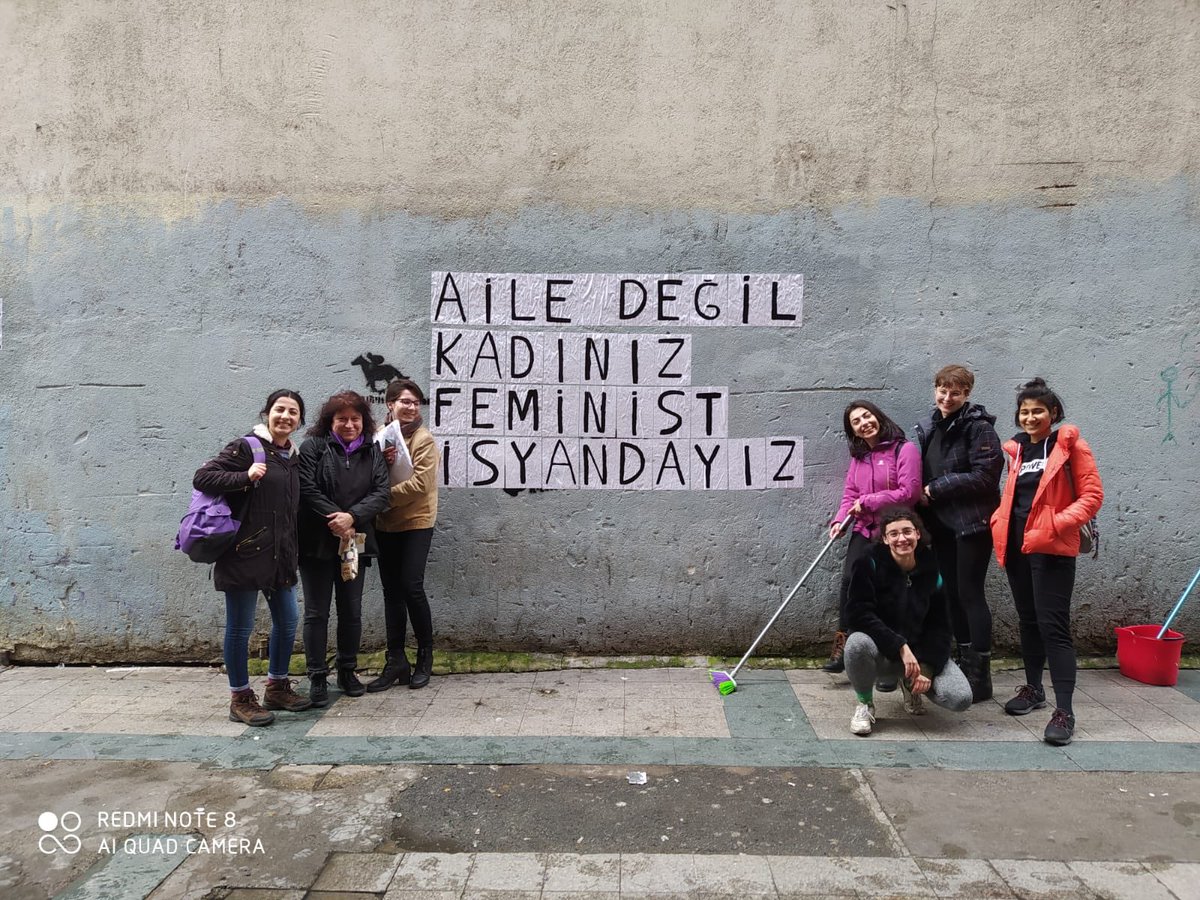 AİLE DEĞİL
KADINIZ
FEMİNİST
İSYANDAYIZ
REDMI NOTE 8
AI QUAD CAMERA